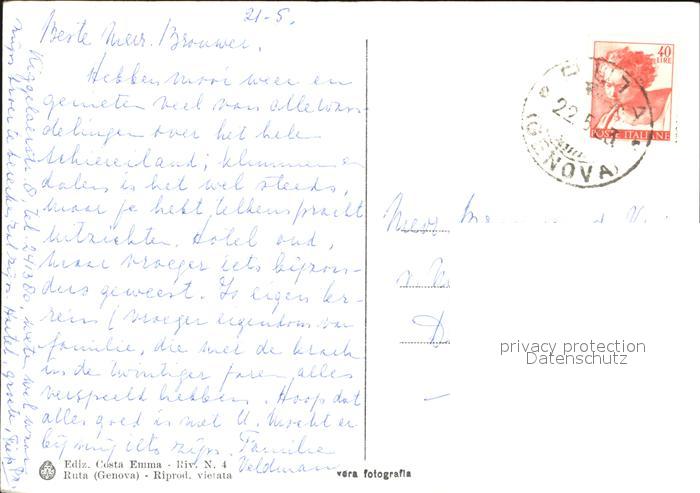 21-5.
Beste Mevr. Brouwer,
Hebben mooi weer en
genieten veel van alle wan-
delingen over het hele
schiereiland; klimmen en
dalen is het wel steeds,
maar je hebt telkens pracht
uitzichten. Hotel oud,
maar vroeger iets bijzon-
ders geweest. Is eigen ter-
rein (vroeger eigendom van
familie, die met de krach
in de twintiger jaren alles
verspeeld hebben. Hoop dat
alles goed is met U. Mocht er
bij mij iets zijn. Familie
Veldman
8, tel. 241380, weten wel waar
te bereiken zijn. Hartel. groeten,
Ediz. Costa Emma - Riv. N. 4
Ruta (Genova) - Riprod. vietata
vera fotografia
40
LIRE
POSTE ITALIANE
RUTA
22.5
(GENOVA)
Mevr.
privacy protection
Datenschutz